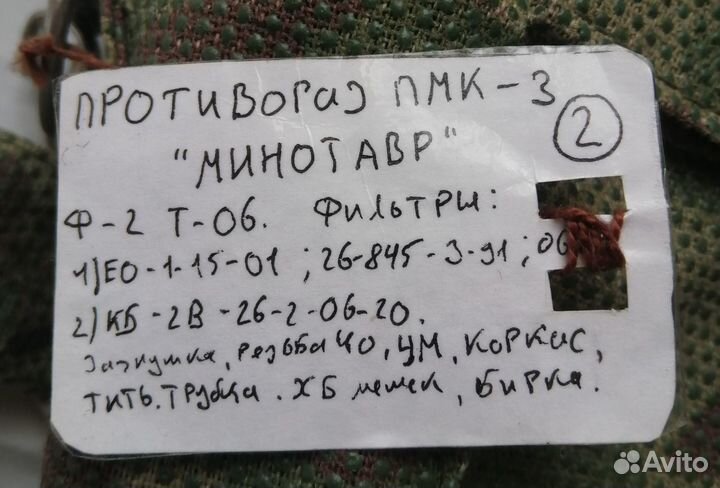 ПРОТИВОГАЗ ПМК-3
"МИНОТАВР"
2
Ф-2 Т-06. ФИЛЬТРЫ:
1) ЕО-1-15-01 ; 26-845-3-91 ; 06
2) КБ-2В-26-2-06-20.
Заглушка, Резьба 40, ЧМ, КОРКАС,
ПИТЬ. ТРУБКА. ХБ мешек, БИРКА.
Avito